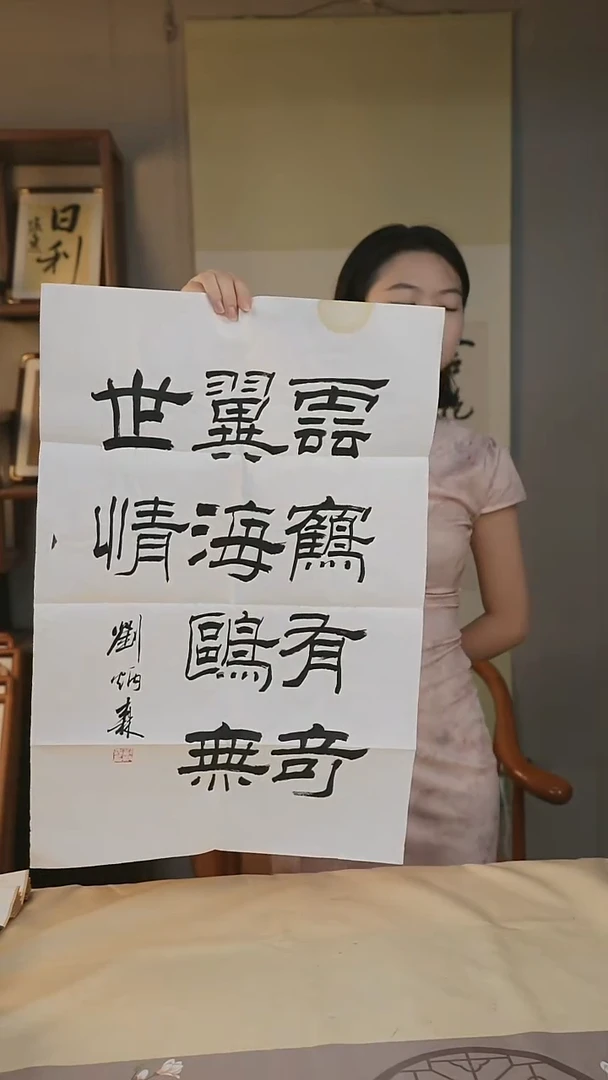 雲鶴有奇
翼海鷗無
世情
劉炳森
日利